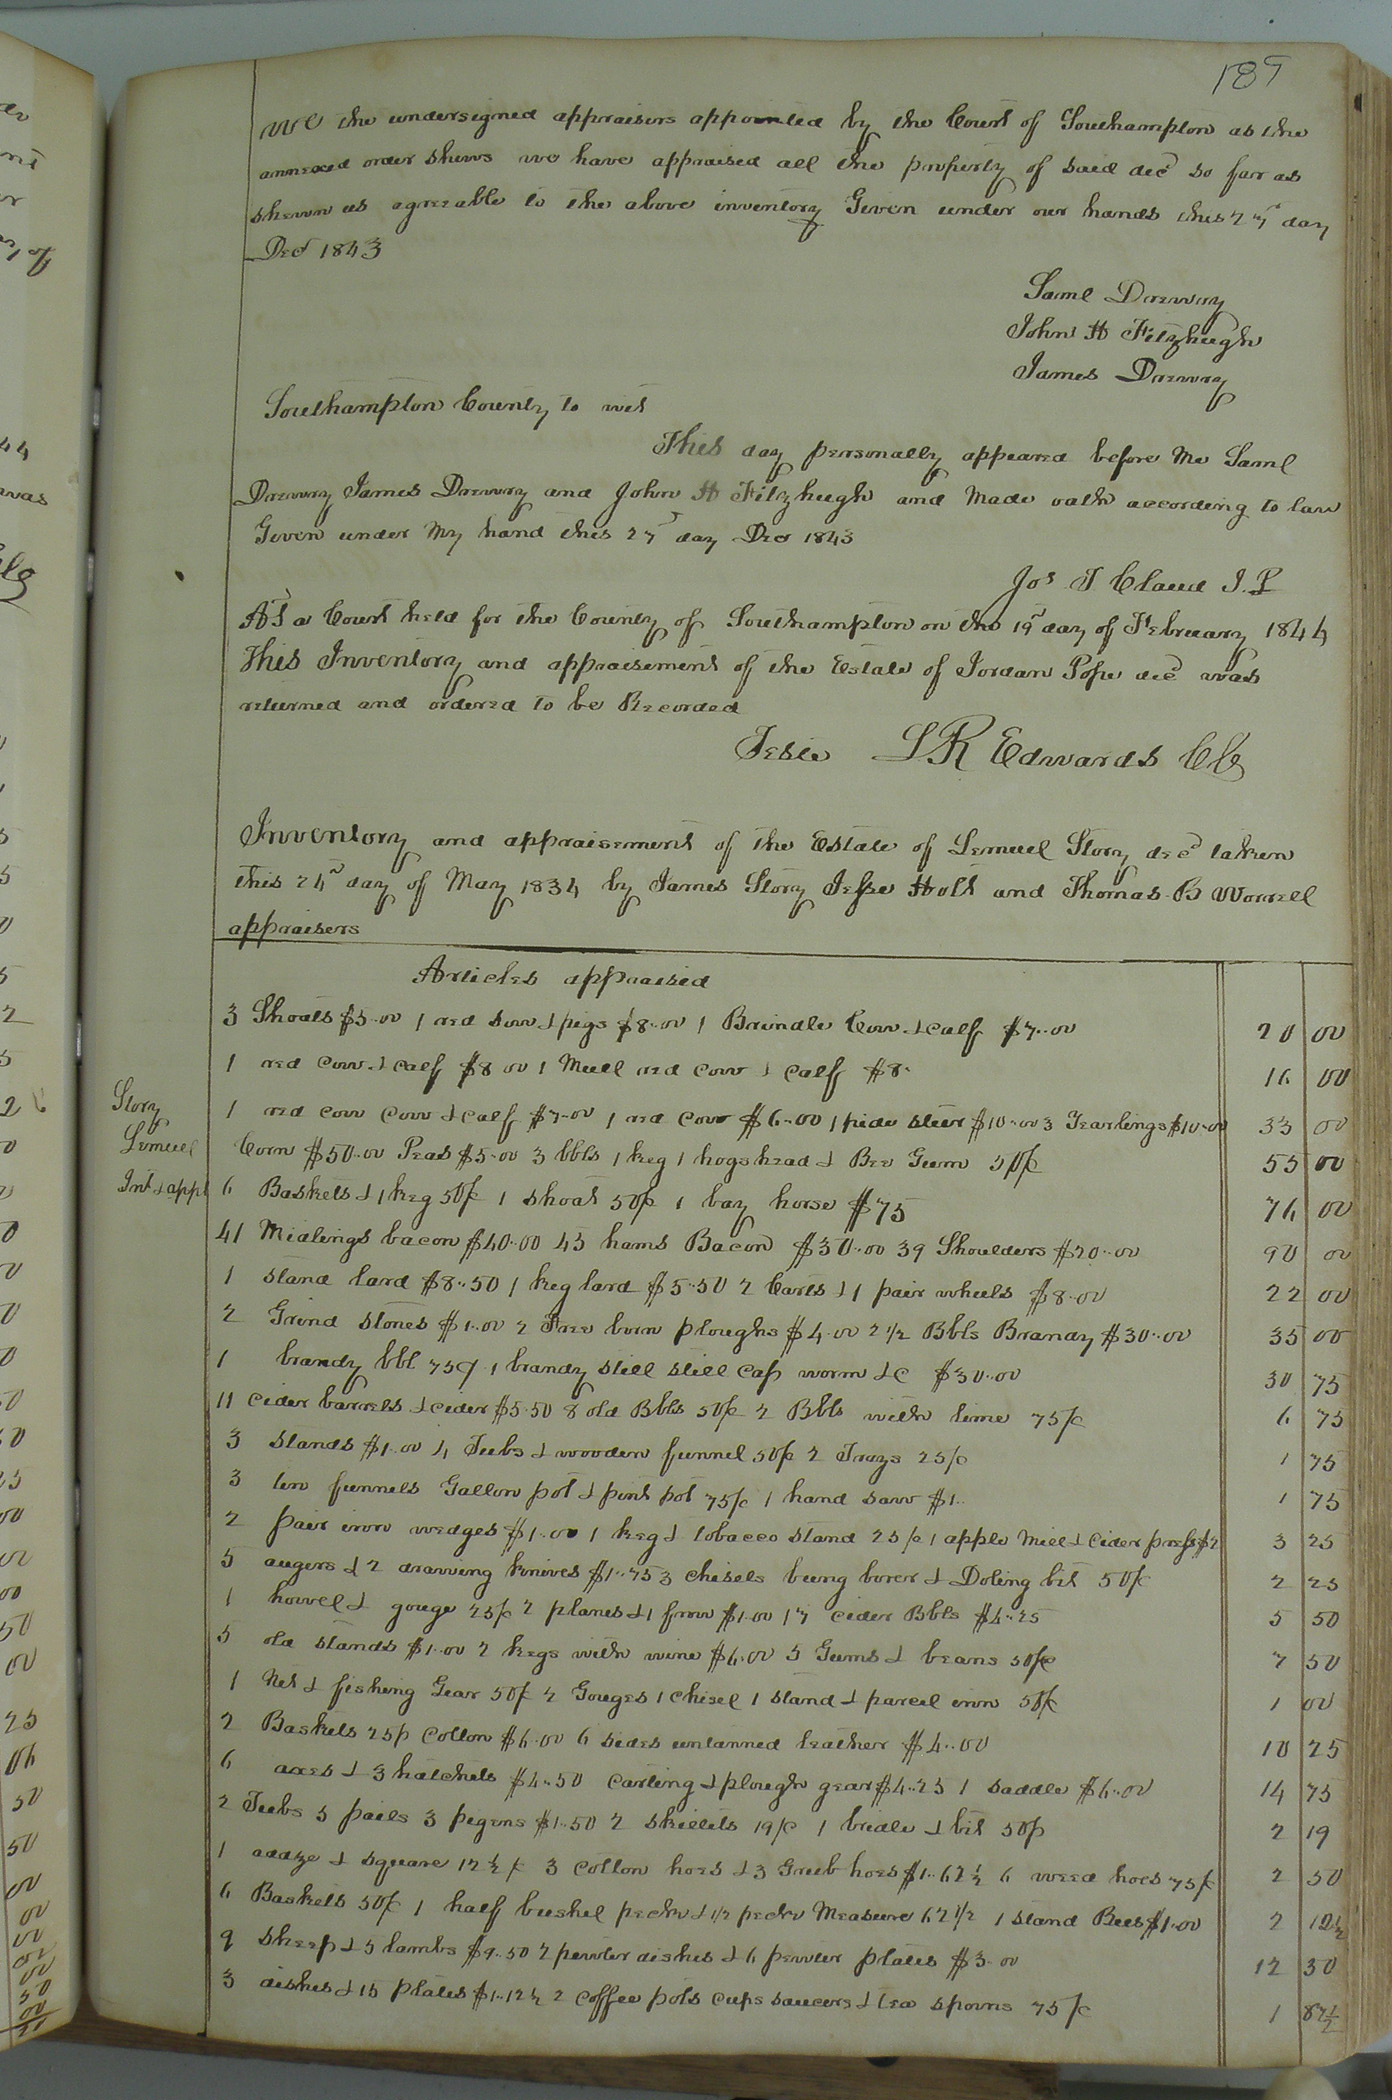 189
We the undersigned appraisers appointed by the Court of Southampton as the
annexed order shews we have appraised all the property of said decd so far as
shewn us agreeable to the above inventory Given under our hands this 27th day
Decr 1843
Saml Drewry
John H Fitzhugh
James Drewry
Southampton County to wit
This day personally appeared before me Saml
Drewry James Drewry and John H Fitzhugh and made oath according to law
Given under my hand this 27 day Decr 1843
Jos T Claud J.P
At a Court held for the County of Southampton on the 19th day of February 1844
This Inventory and appraisement of the Estate of Jordan Pope decd was
returned and ordered to be Recorded
Teste L R Edwards CC
Inventory and appraisement of the Estate of Lemuel Story decd taken
this 24th day of May 1834 by James Story Jesse Holt and Thomas B Worrell
appraisers
Articles appraised
3 Shoats $5.00 1 red sow & pigs $8.00 1 Brindle Cow & calf $7.00 20 00
1 red cow & calf $8 00 1 Mull red cow & calf $8. 16 00
Story
Lemuel
Int & appt
1 red cow cow & calf $7.00 1 red cow $6.00 1 pide steer $10.00 3 Yearlings $10.00 33 00
Corn $50.00 Peas $5.00 3 bbls 1 keg 1 hogshead & Bee Gum 50/c 55 00
6 Baskets & 1 keg 50/c 1 shoat 50/c 1 bay horse $75 76 00
41 Midlings bacon $40.00 45 hams Bacon $30.00 39 Shoulders $20.00 90 00
1 stand lard $8.50 1 keg lard $5.50 2 Carts & 1 pair wheels $8.00 22 00
2 Grind stones $1.00 2 Free born ploughs $4.00 2 1/2 Bbls Brandy $30.00 35 00
1 brandy bbl 75c/ 1 brandy still still cap worm &c $30.00 30 75
11 cider barrels & cider $5.50 8 old Bbls 50/c 2 Bbls with lime 75/c 6 75
3 stands $1.00 4 Tubs & wooden funnel 50/c 2 Trays 25/c 1 75
3 tin funnels Gallon pot & pint pot 75/c 1 hand saw $1.. 1 75
2 pair iron wedges $1.00 1 keg & tobacco stand 25/c 1 apple Mill & Cider press $2 3 25
5 augers & 2 drawing knives $1.75 3 chisels bung borer & Doling bit 50/c 2 25
1 howel & gouge 25/c 2 planes & 1 frow $1.00 17 cider Bbls $4.25 5 50
5 old stands $1.00 2 kegs with wine $6.00 5 Gums & beans 50/c 7 50
1 Net & fishing Gear 50/c 2 Gouges 1 chisel 1 stand & parcel iron 50/c 1 00
2 Baskets 25/c Cotton $6.00 6 sides untanned leather $4..00 10 25
6 axes & 3 hatchets $4..50 carting & plough gear $4..25 1 saddle $6.00 14 75
2 Tubs 5 pails 3 pigens $1.50 2 skillets 19/c 1 bridle & bit 50/c 2 19
1 addze & square 12 1/2/c 3 cotton hoes & 3 Grub hoes $1..62 1/2 6 weed hoes 75/c 2 50
6 Baskets 50/c 1 half bushel peck & 1/2 peck Measure 62 1/2 1 stand Bees $1.00 2 12 1/2
9 sheep & 5 lambs $9.50 2 pewter dishes & 6 pewter plates $3.00 12 50
3 dishes & 15 plates $1.12 1/2 2 coffee pots cups saucers & tea spoons 75/c 1 87 1/2